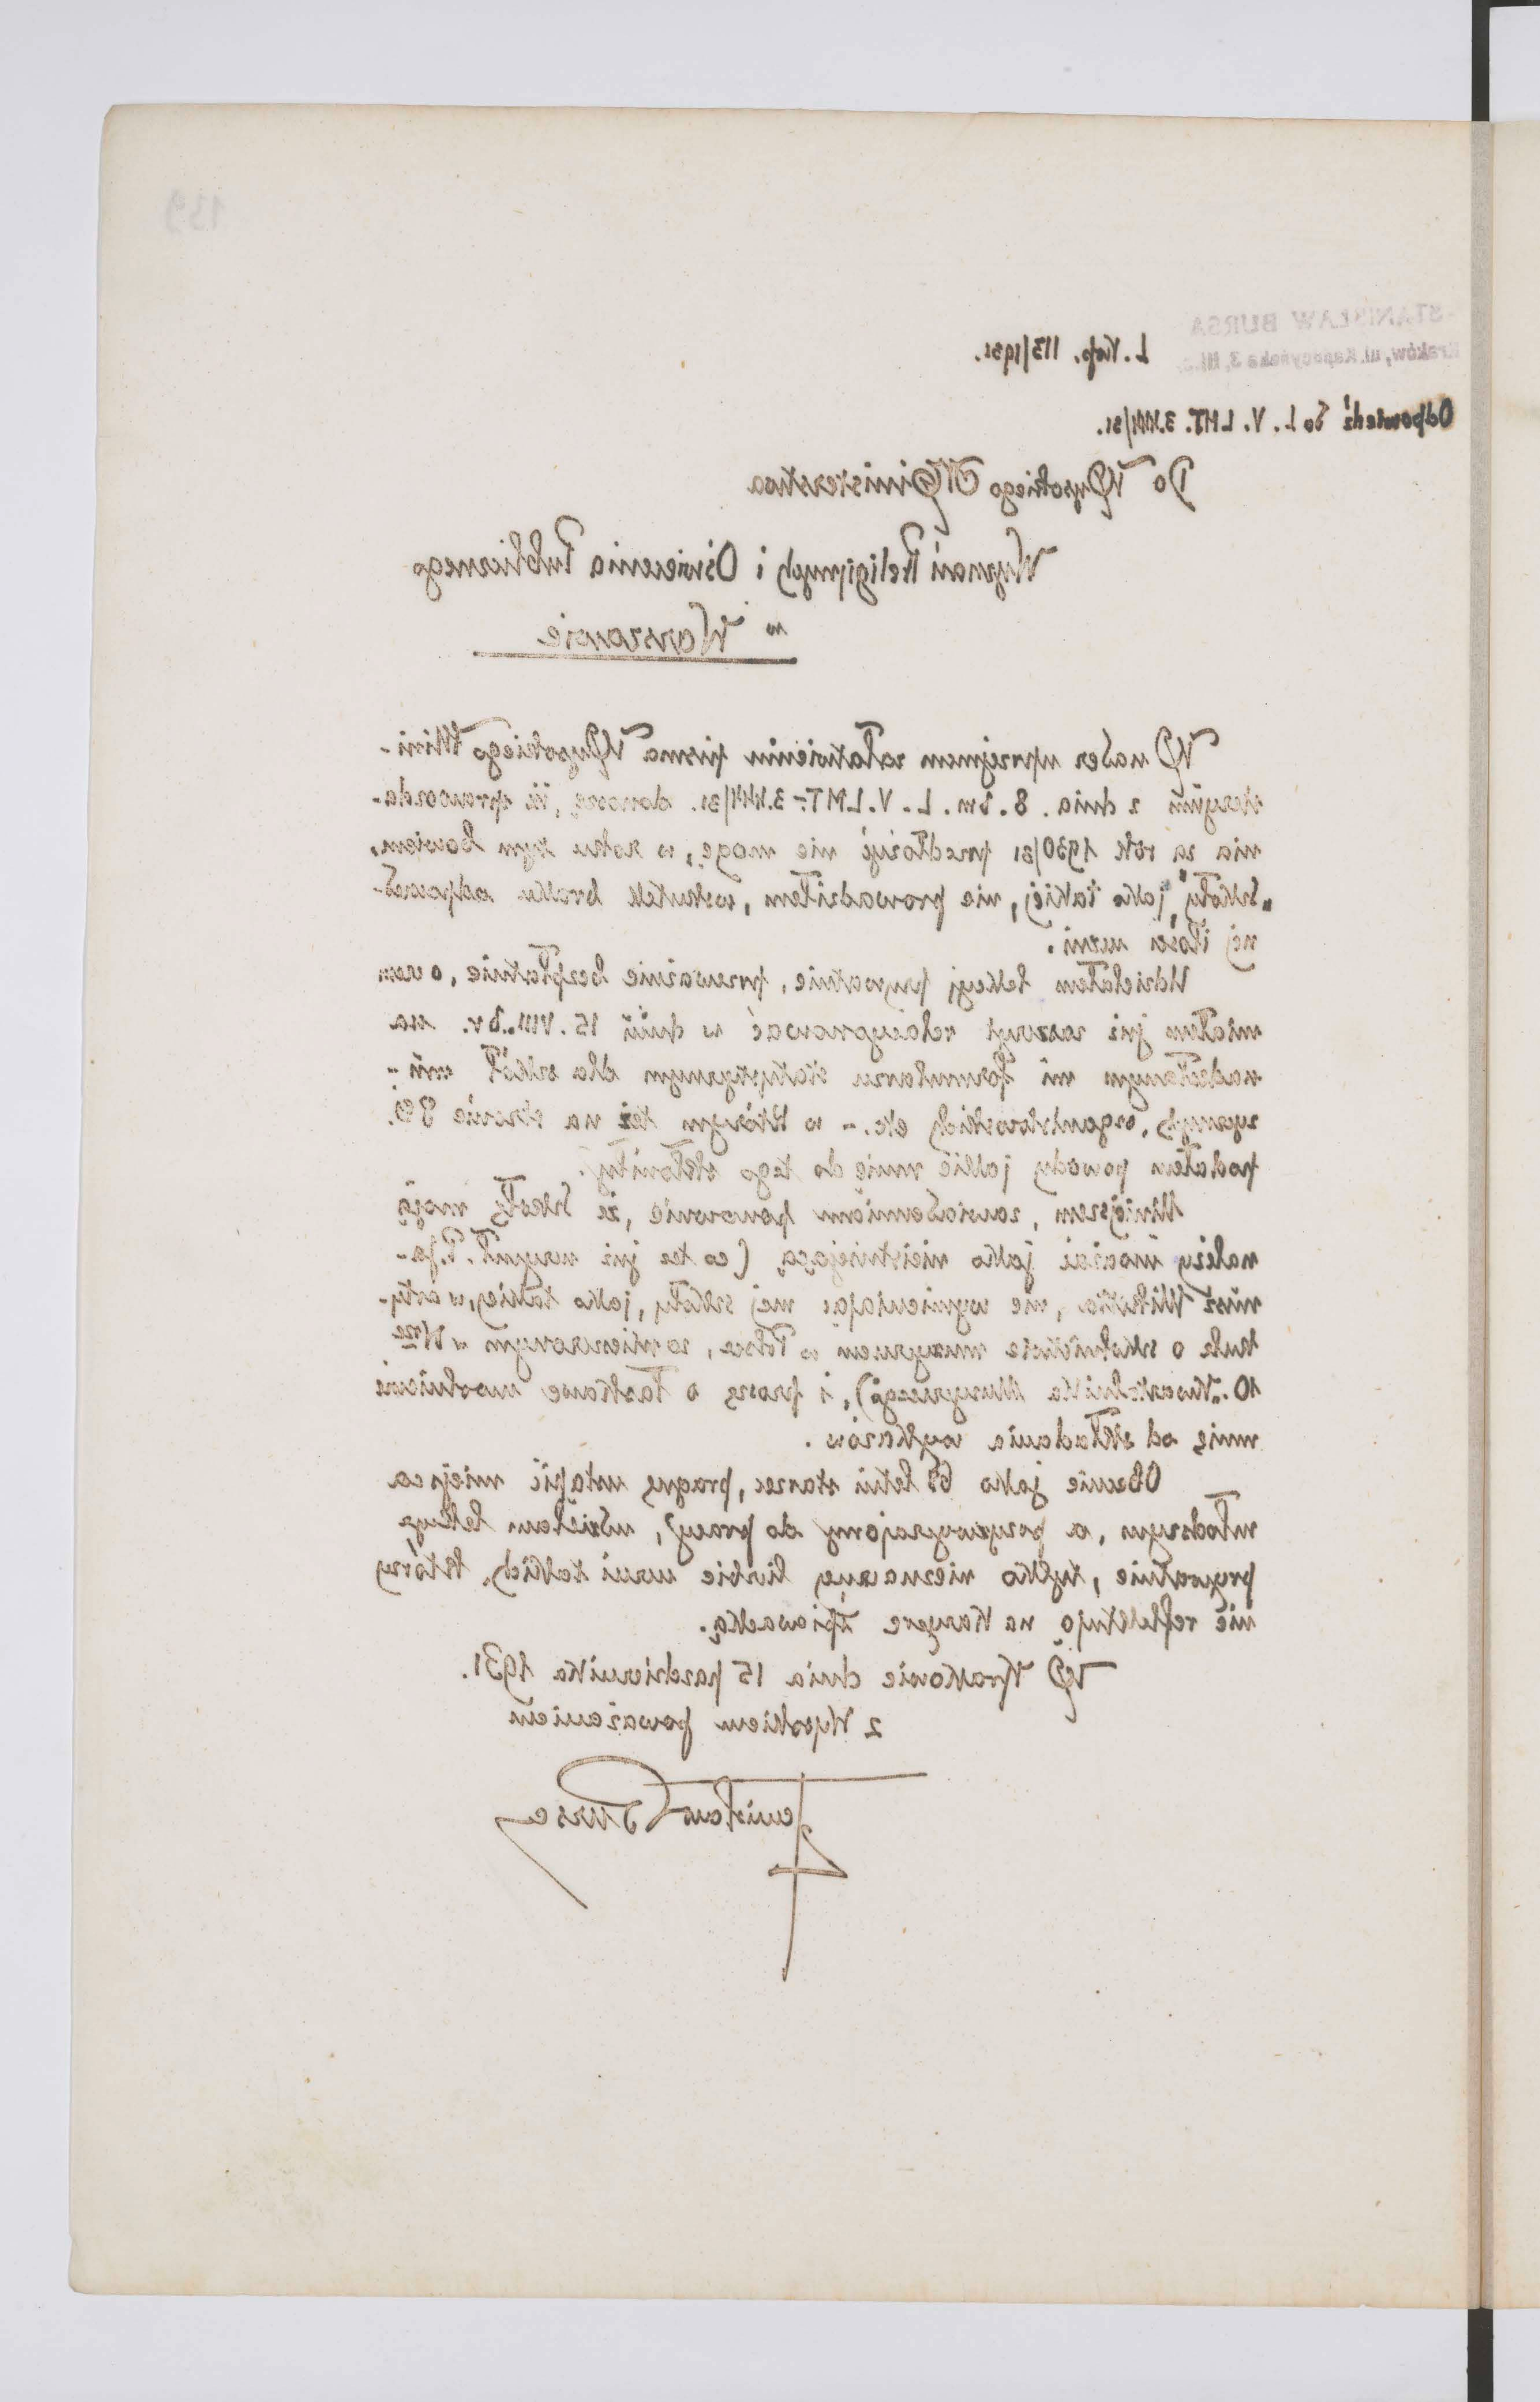 139
STANISŁAW BURSA
Kraków, ul. Kapucyńska 3, III p.
L. Kop. 113/1931.
Odpowiedź do L. V. LMT. 3.
Do Wysokiego Ministerstwa
Wyznań Religijnych i Oświecenia Publicznego
w Warszawie
W nader uprzejmem załatwieniu pisma Wysokiego Mini-
z dnia 8. bm. L. V. LMT.- 3. donoszę, iż sprawozda-
nia za rok 1930/31 przedłożyć nie mogę, w roku tym bowiem,
"szkoły" jako takiej, nie prowadziłem, wskutek braku odpowied-
nej ilości uczni.
Udzielałem lekcyj prywatnie, przeważnie bezpłatnie, o czem
miałem już zaszczyt relacyonować w dniu 15. VIII. br. na
nadesłanym mi formularzu statystycznym dla szkół mu-
zycznych, organistowskich etc. - w którym też na stronie 8ej.
podałem powody jakie mnie do tego skłoniły.
Niniejszem, zawiadamiam ponownie, że szkołę moją
należy uważać jako nieistniejącą (co też już uczynił P. Ja-
nusz Miketta, nie wymieniając mej szkoły, jako takiej, w arty-
kule o szkolnictwie muzycznem w Polsce, zamieszczonym w Nrze
10. "Kwartalnika Muzycznego"), i proszę o łaskawe uwolnienie
mnie od składania wykazów.
Obecnie jako letni starzec, pragnę ustąpić miejsca
młodszym, a przyzwyczajony do pracy, udzielam lekcyj
prywatnie, tylko nieznacznej liczbie uczni takich, którzy
nie reflektują na karyerę śpiewacką.
W Krakowie dnia 15 października 1931.
z Wysokiem poważaniem
Stanisław Bursa